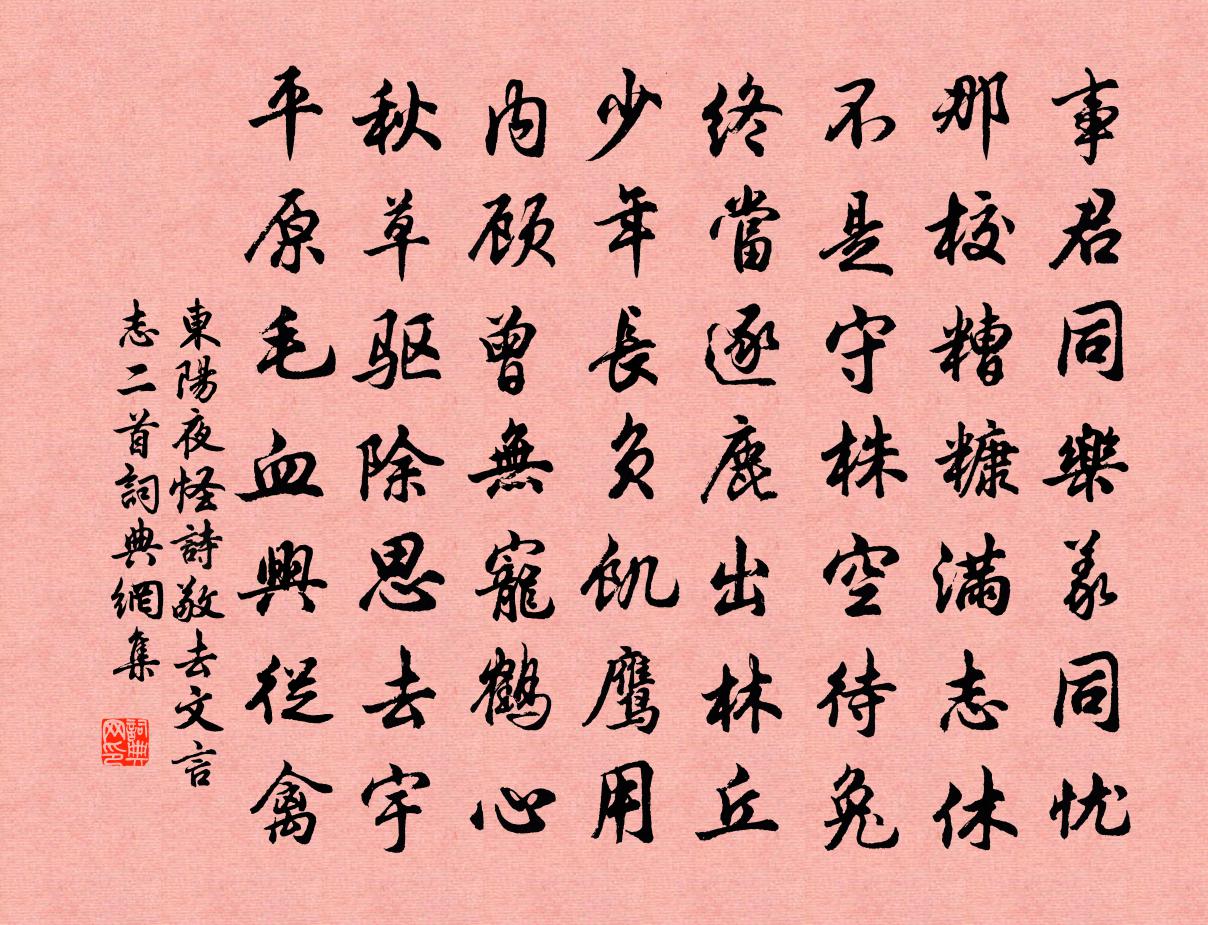 事君同樂義同忧
那校糟糠满志休
不是守株空待兔
终當逐鹿出林丘
少年長负飢鹰用
内顾曾無寵鶴心
秋草驱除思去宇
平原毛血興從禽
東陽夜怪詩敬去文言
志二首詞典網集
詞典网印